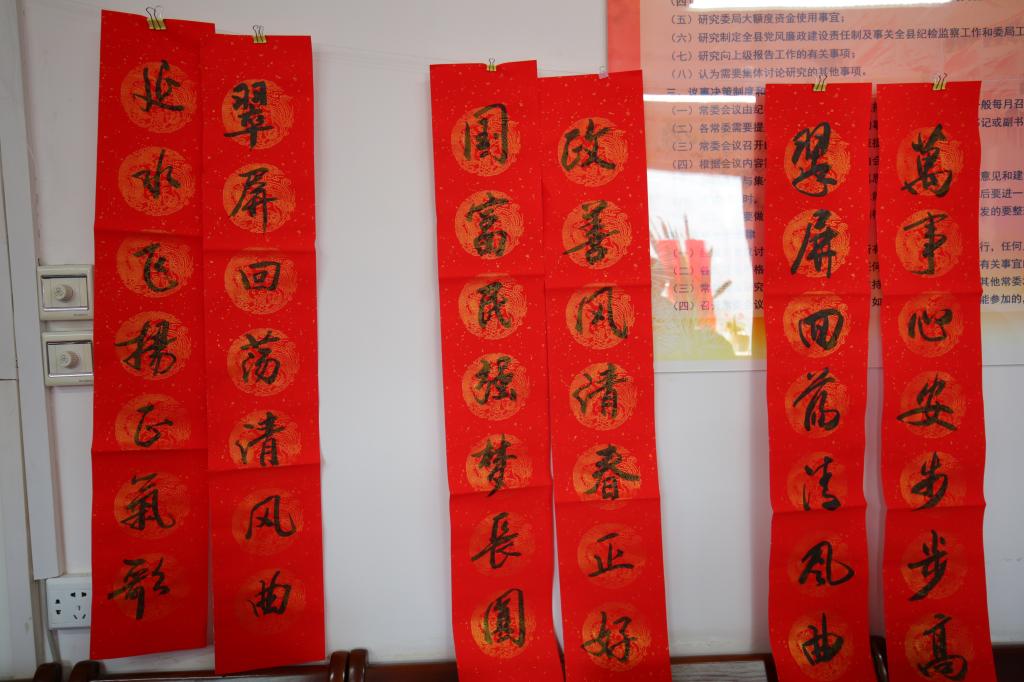 延水飞扬正氣歌
翠屏回荡清风曲
国富民强梦长圆
政善风清春正好
翠屏回荡清風曲
萬事心安步步高
（五）研究委局大额度资金使用事宜；
（六）研究制定全县党风廉政建设责任制及事关全县纪检监察工作和委局工
（七）研究向上级报告工作的有关事项；
（八）认为需要集体讨论研究的其他事项。
三、议事决策制度和
（一）常委会议由纪
般每月召
（二）各常委需要提
书记或副书
（三）常委会议召开
（四）根据会议内容
意见和建
后要进一
发的要整
行，任何
有关事宜
其他常委
能参加的